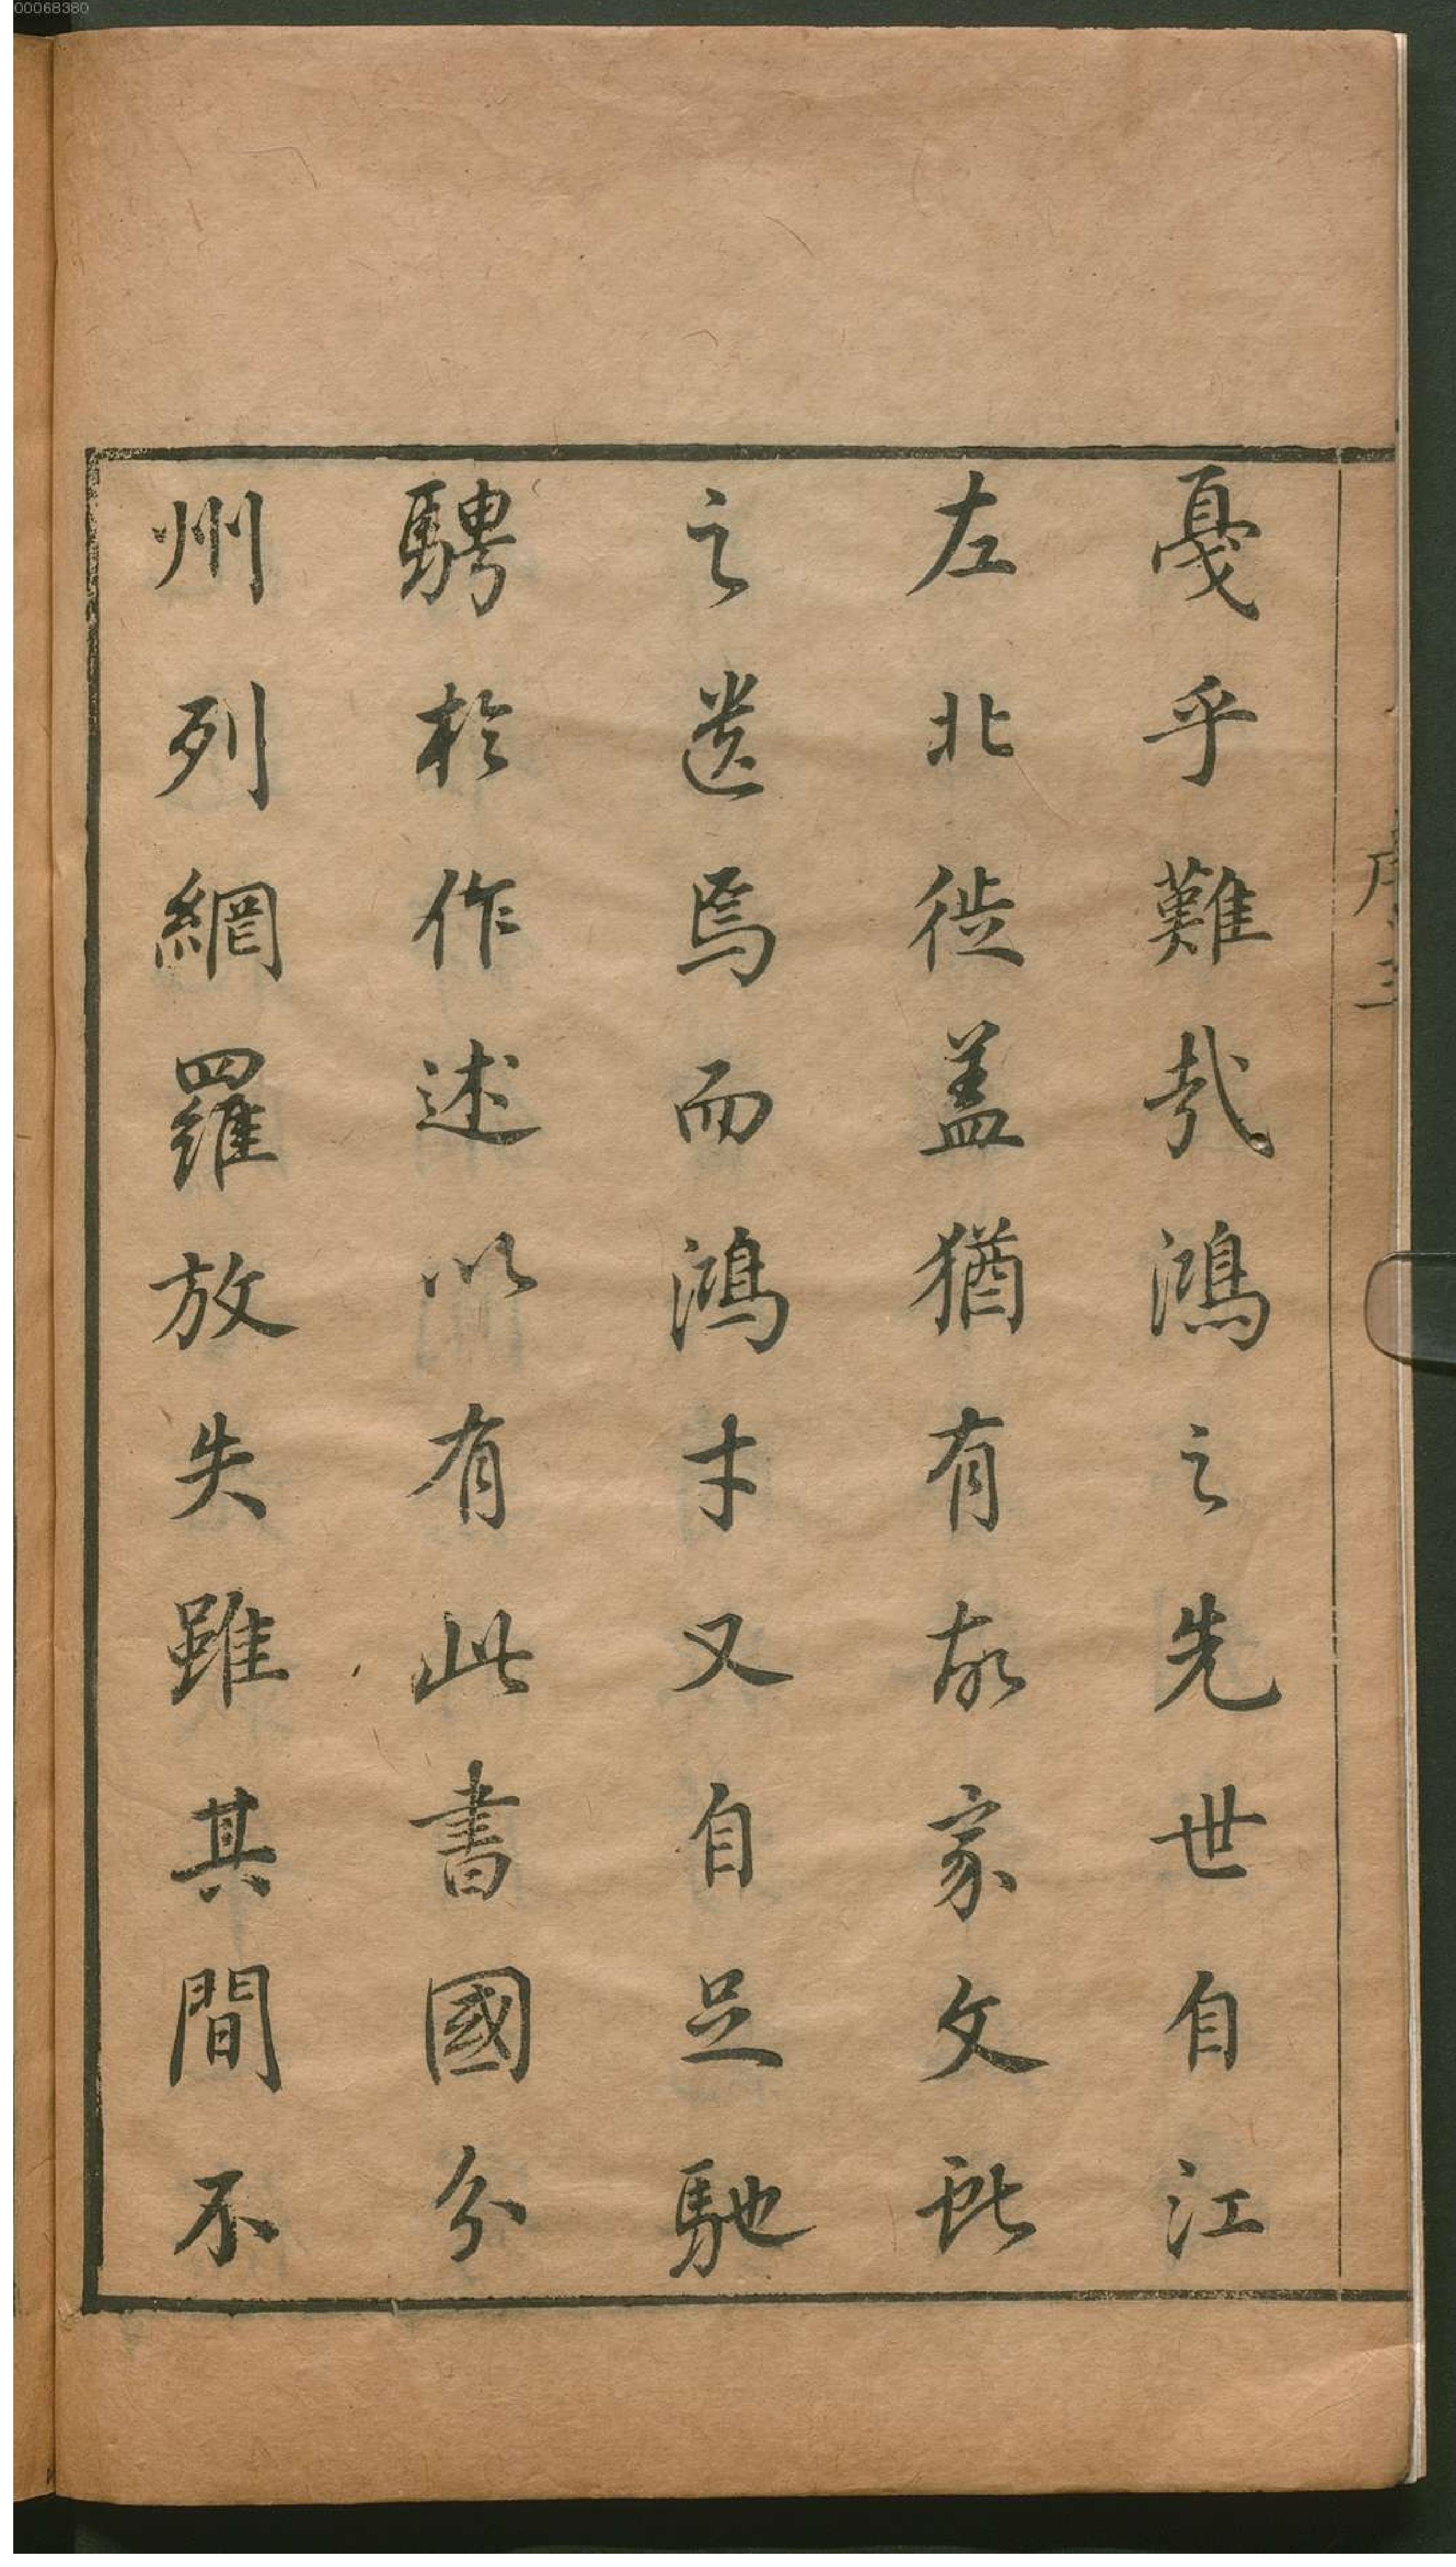 00068380
序 三
戛乎難哉鴻之先世自江
左北徙蓋猶有故家文獻
之遺焉而鴻才又自足馳
騁於作述以有此書國分
州列網羅放失雖其間不